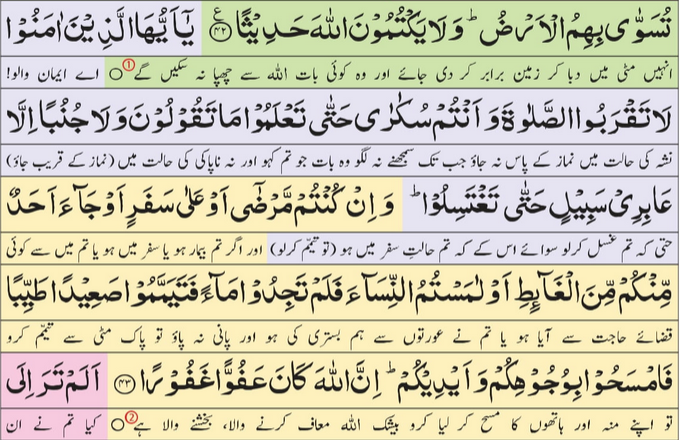 تُسَوّٰى بِهِمُ الْاَرْضُ ؕ وَلَا يَكْتُمُوْنَ اللّٰهَ حَدِيْثًا ﴿۴۲﴾ يٰۤاَيُّهَا الَّذِيْنَ اٰمَنُوْا
انہیں مٹی میں دبا کر زمین برابر کر دی جائے اور وہ کوئی بات اللہ سے چھپا نہ سکیں گے ① ○ اے ایمان والو!
لَا تَقْرَبُوا الصَّلٰوةَ وَ اَنْتُمْ سُكٰرٰى حَتّٰى تَعْلَمُوْا مَا تَقُوْلُوْنَ وَ لَا جُنُبًا اِلَّا
نشہ کی حالت میں نماز کے پاس نہ جاؤ جب تک سمجھنے نہ لگو وہ بات جو تم کہو اور نہ ناپاکی کی حالت میں (نماز کے قریب جاؤ)
عَابِرِيْ سَبِيْلٍ حَتّٰى تَغْتَسِلُوْا ؕ وَ اِنْ كُنْتُمْ مَّرْضٰۤى اَوْ عَلٰى سَفَرٍ اَوْ جَآءَ اَحَدٌ
حتی کہ تم غسل کرلو سوائے اس کے کہ تم حالتِ سفر میں ہو (تو تیمّم کرلو) اور اگر تم بیمار ہو یا سفر میں ہو یا تم میں سے کوئی
مِّنْكُمْ مِّنَ الْغَآىِٕطِ اَوْ لٰمَسْتُمُ النِّسَآءَ فَلَمْ تَجِدُوْا مَآءً فَتَيَمَّمُوْا صَعِيْدًا طَيِّبًا
قضائے حاجت سے آیا ہو یا تم نے عورتوں سے ہم بستری کی ہو اور پانی نہ پاؤ تو پاک مٹی سے تیمّم کرو
فَامْسَحُوْا بِوُجُوْهِكُمْ وَ اَيْدِيْكُمْ ؕ اِنَّ اللّٰهَ كَانَ عَفُوًّا غَفُوْرًا ﴿۴۳﴾ اَلَمْ تَرَ اِلَى
تو اپنے منہ اور ہاتھوں کا مسح کر لیا کرو بیشک اللہ معاف کرنے والا، بخشنے والا ہے ② ○ کیا تم نے ان